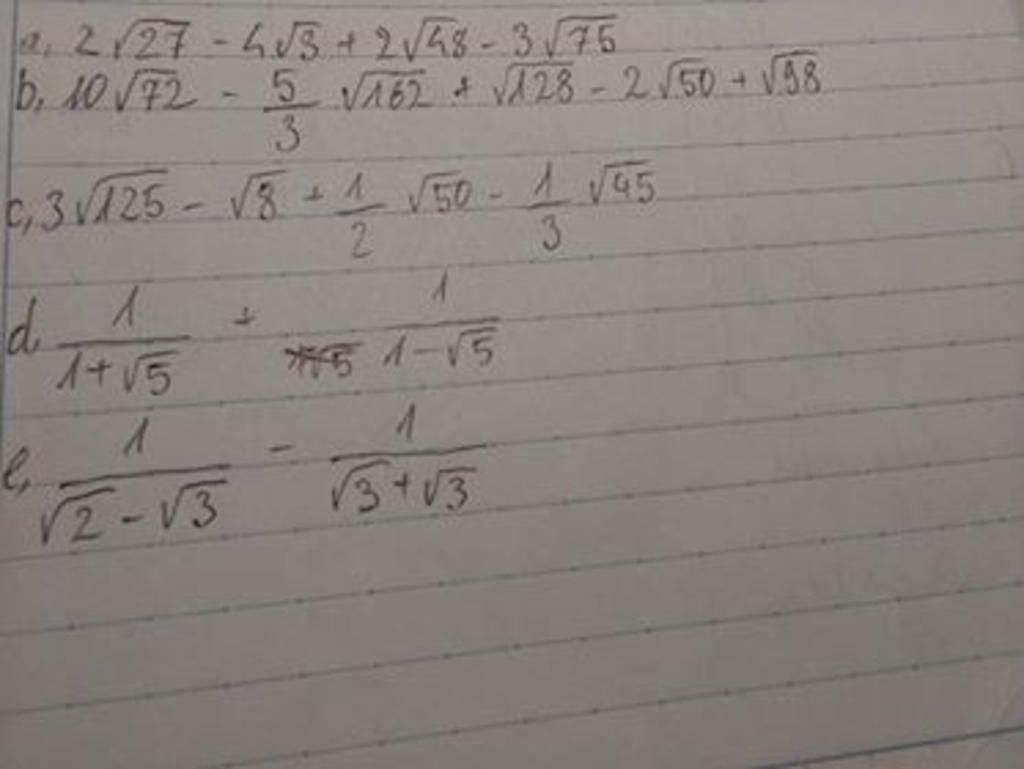 a, 2√27 - 4√3 + 2√48 - 3√75
b, 10√72 - 5/3 √162 + √128 - 2√50 + √98
c, 3√125 - √8 + 1/2 √50 - 1/3 √45
d, 1/(1+√5) + 1/(1-√5)
e, 1/(√2-√3) - 1/(√3+√3)